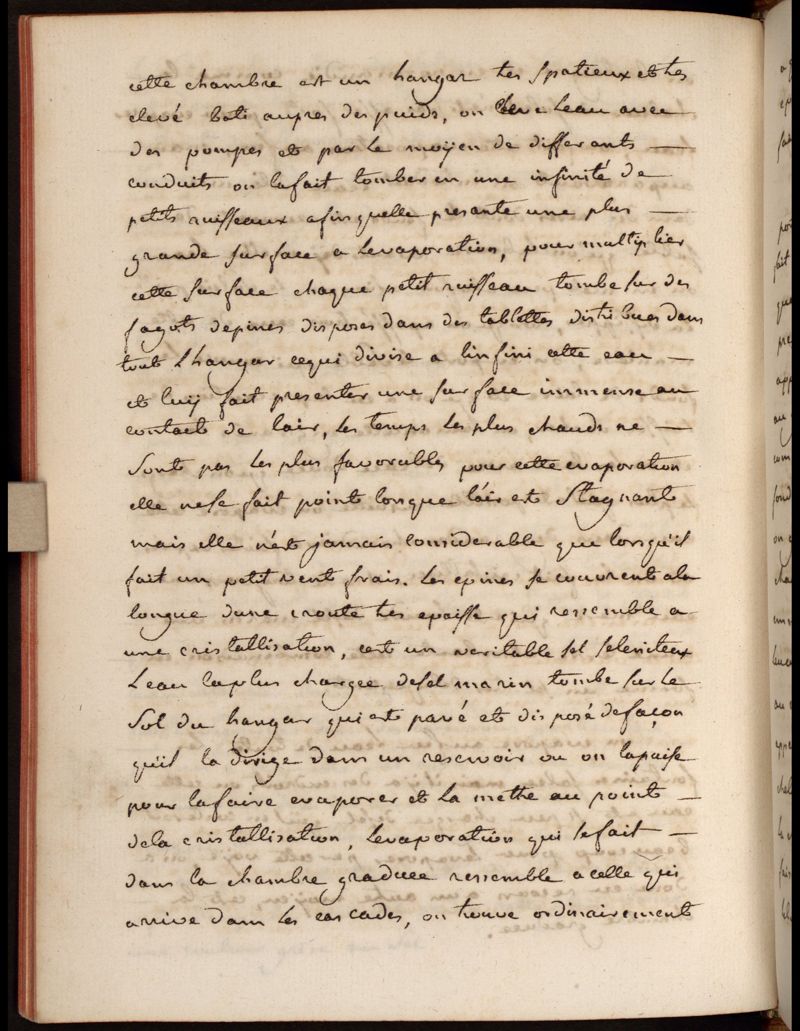 cette chambre est un hangar tes spatieux et tes
elevé bati aupres des puids, on eleve leau avec
des pompes et par le moÿen de differants —
conduits on lafait tomber en une infinité de
petits ruisseaux afinquelle presante une plus —
grande surface a levaporation, pour multiplier
cette surface chaque petit ruisseau tombe sur des
fagots depines disposes dans des tablettes distribues dans
tout Lhangar cequi divise a linfini cette eau —
et luÿ fait presenter une surface immense au
contact de lair, les temps les plus chauds ne —
sont pas les plus favorables pour cette evaporation
elle nese fait point lorsque láir est stagnant
mais elle nést jamais considerable que lorsquil
fait un petit vent frais. Les epines se couvrent ala
longue dune croute tes epaisse qui ressemble a
une cristallisation, cest un veritable sel seleniteux
Leau laplus chargee desel marin tombe sur le
sol du hangar qui est pavé et disposé defaçon
quil la dirige dans un reservoir ou on lapuise
pour lafaire evaporer et la mettre au point —
dela cristallisation, levaporation qui sefait —
dans la chambre graduee ressemble acelle qui
arrive dans les cascades, on trouve ordinairement